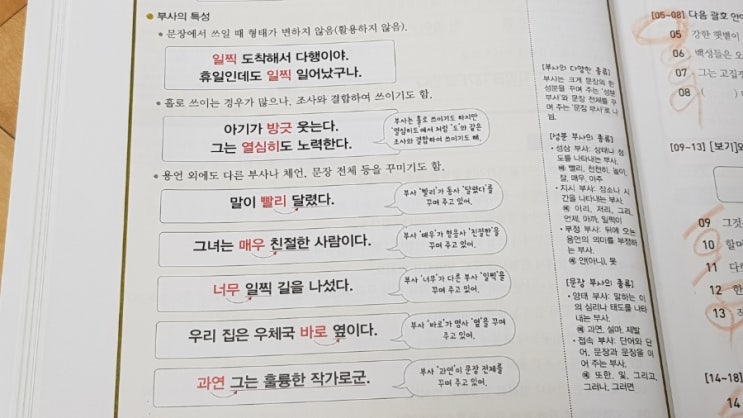 부사의 특성
• 문장에서 쓰일 때 형태가 변하지 않음(활용하지 않음).
일찍 도착해서 다행이야.
휴일인데도 일찍 일어났구나.
• 홀로 쓰이는 경우가 많으나, 조사와 결합하여 쓰이기도 함.
아기가 방긋 웃는다.
그는 열심히도 노력한다.
부사는 홀로 쓰이기도 하지만
'열심히도'에서처럼 '도'와 같은
조사와 결합하여 쓰이기도 해.
• 용언 외에도 다른 부사나 체언, 문장 전체 등을 꾸미기도 함.
말이 빨리 달렸다.
부사 '빨리'가 동사 '달렸다'를
꾸며 주고 있어.
그녀는 매우 친절한 사람이다.
부사 '매우'가 형용사 '친절한'을
꾸며 주고 있어.
너무 일찍 길을 나섰다.
부사 '너무'가 다른 부사 '일찍'을
꾸며 주고 있어.
우리 집은 우체국 바로 옆이다.
부사 '바로'가 명사 '옆'을 꾸며
주고 있어.
과연 그는 훌륭한 작가로군.
부사 '과연'이 문장 전체를
꾸며 주고 있어.
[부사의 다양한 종류]
부사는 크게 문장의 한
성분을 꾸며 주는 '성분
부사'와 문장 전체를 꾸
며 주는 '문장 부사'로 나
뉨.
[성분 부사의 종류]
• 성상 부사: 상태나 정
도를 나타내는 부사.
예 빨리, 천천히, 높이,
잘, 매우, 아주
• 지시 부사: 장소나 시
간을 나타내는 부사.
예 이리, 저리, 그리,
언제, 아까, 일찍이
• 부정 부사: 뒤에 오는
용언의 의미를 부정하
는 부사.
예 안(아니), 못
[문장 부사의 종류]
• 양태 부사: 말하는 이
의 심리나 태도를 나타
내는 부사.
예 과연, 설마, 제발
• 접속 부사: 단어와 단
어, 문장과 문장을 이
어 주는 부사.
예 또한, 및, 그리고,
그러나, 그러면
[05~08] 다음 괄호 안
05 강한 햇볕이
06 백성들은 오
07 그는 고집
08 ( )
[09~13] [보기]
09 그것
10 할머
11 다
12 한
13
[14~18]
14